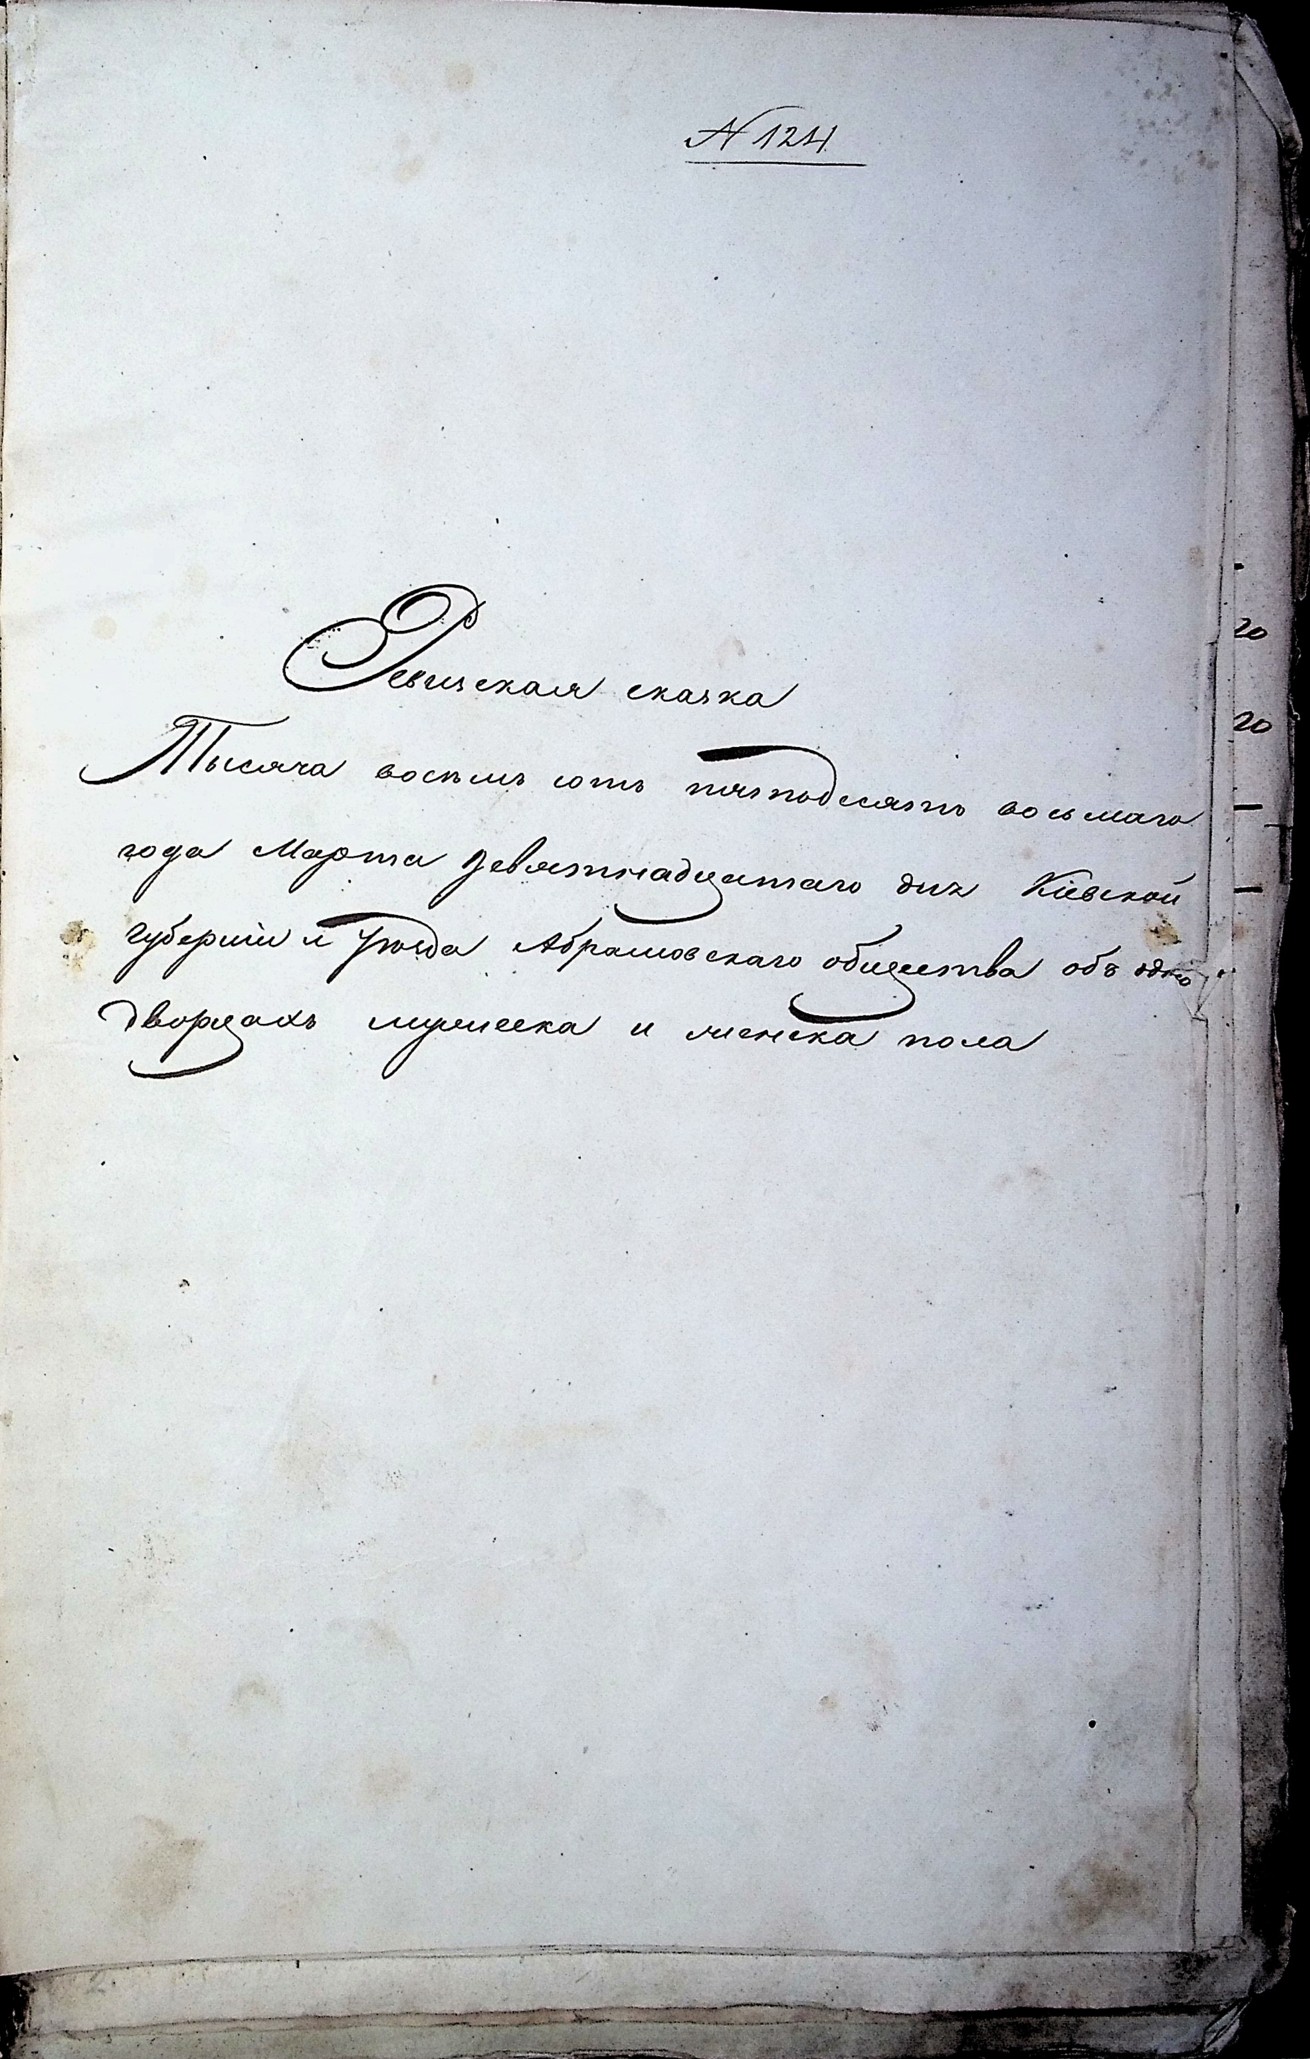 N 124
Ревизская сказка
Тысяча восемь сотъ пятьдесятъ восьмаго
года Марта девятнадцатаго дня Кіевской
губерніи и Уѣзда Абрамовскаго общества объ одно
дворцахъ мужеска и женска пола
20
20